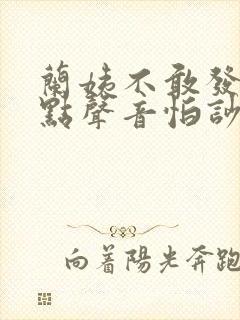 蘭姨不敢發
點聲音怕訬
向着陽光奔跑